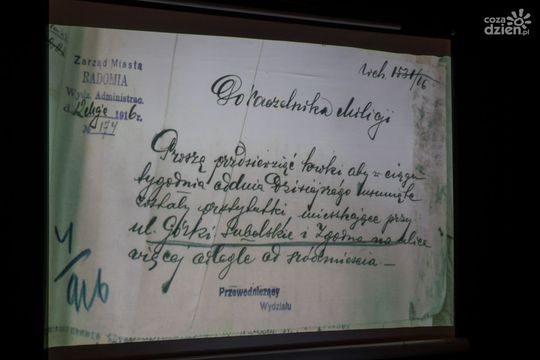 coza
dzień.pl
Zarząd Miasta
RADOMIA
Wydz. Administrac.
d. 1916 r.
№ 174
Wch.
Do Naczelnika Milicji
Proszę przedsięwziąć kroki aby w ciągu
tygodnia od dnia dzisiejszego usunięte
zostały prostytutki, mieszkające przy
ul. Górki Lubelskie i Zgodna na ulice
więcej odległe od śródmieścia —
Przewodniczący
Wydziału